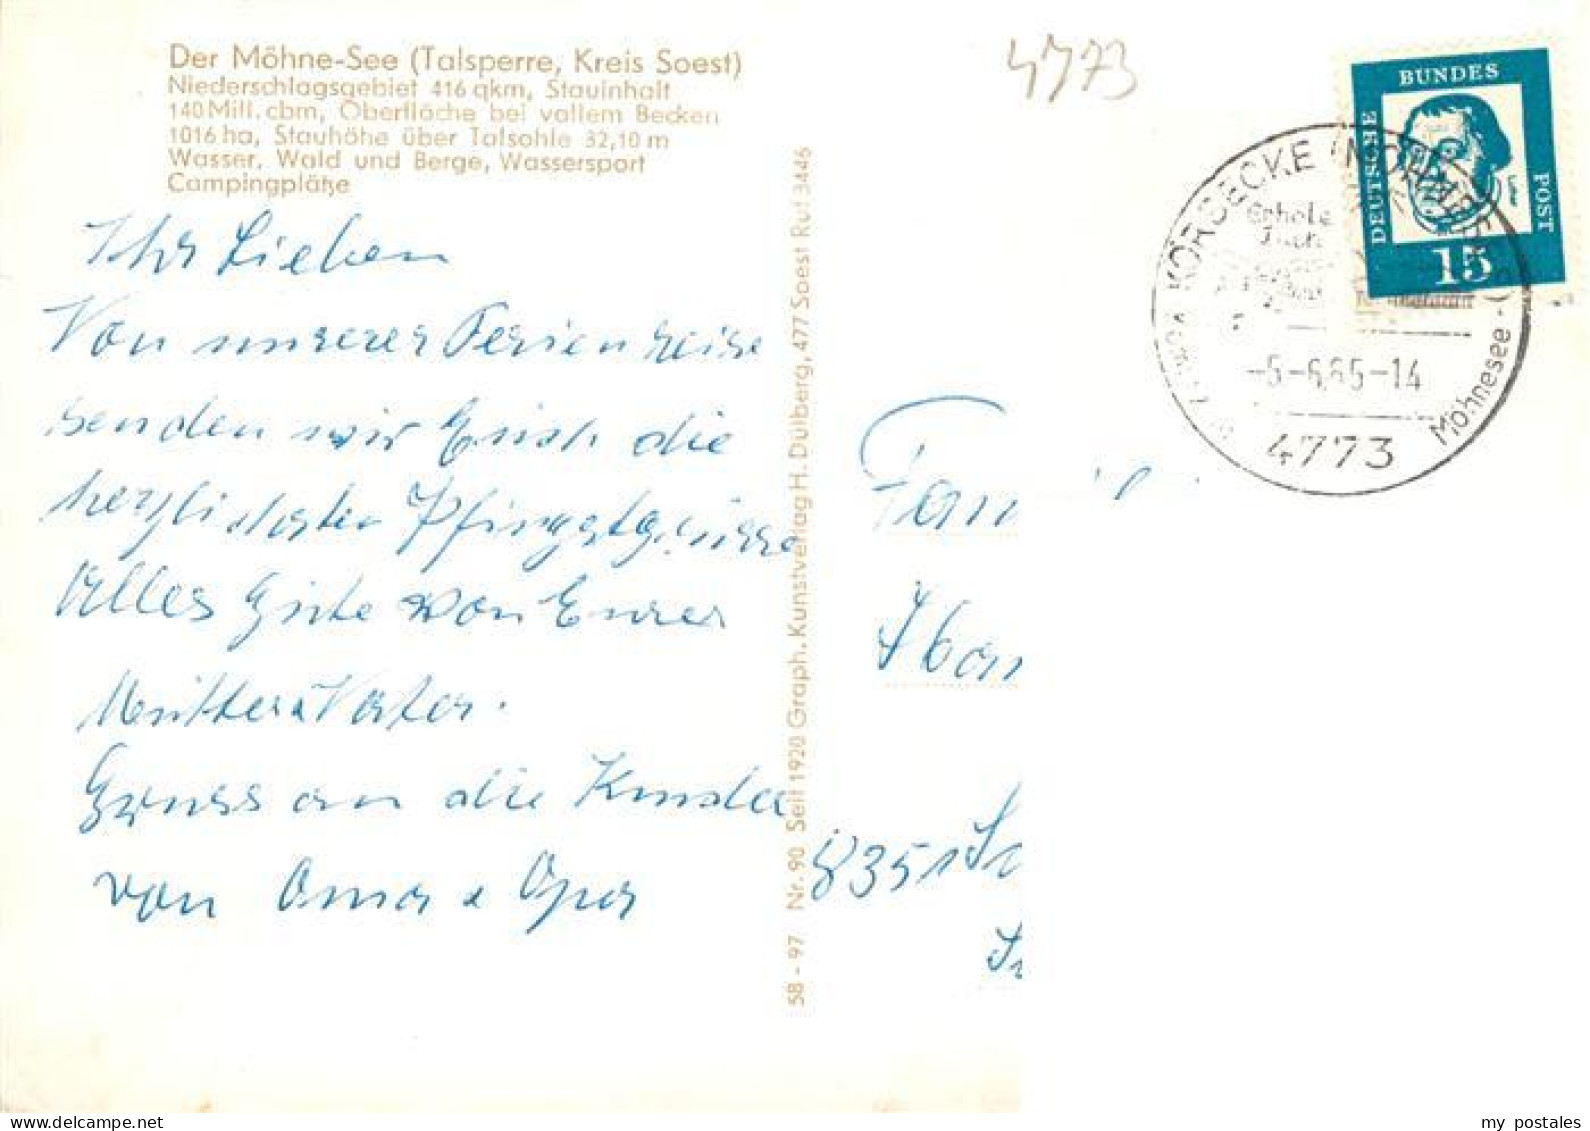 Der Möhne-See (Talsperre, Kreis Soest)
Niederschlagsgebiet 416 qkm, Stauinhalt
140 Mill. cbm, Oberfläche bei vollem Becken
1016 ha, Stauhöhe über Talsohle 32,10 m
Wasser, Wald und Berge, Wassersport
Campingplätze
Ihr Lieben
Von unserer Ferienreise
senden wir Euch die
herzlichsten Pfingstgrüsse
Alles Gute von Eurer
Mutter u Vater.
Gruss an die Kinder
von Oma u Opa
58 - 97 Nr. 90 Seit 1920 Graph. Kunstverlag H. Dülberg, 477 Soest Ruf 3446
4773
DEUTSCHE
BUNDES
POST
15
KÖRBECKE (MÖHNESEE)
Erhole
-5-6.65-14
4773
Möhnesee
Fam
8351
my postales